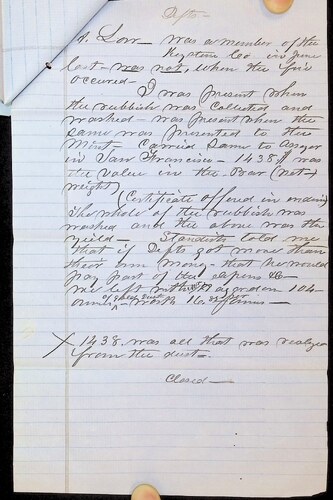 Defts -
A. Low - was a member of the
Keystone Co in June
last - was not, when the fire
occured -
I was present when
the rubbish was Collected and
washed - was present when the
same was presented to the
Mint - Carried same to assayer
in San Francisco - 1438 was
the value in the Bar (net
weight)
(Certificate offered in
The whole of the rubbish was
washed and the above was the
yield - Standish told me
that if Defts got more than
their own money - that he would
pay part of the expens &c -
we left with 104
worth 16
X 1438. was all that was realized
from the dust -
Closed -